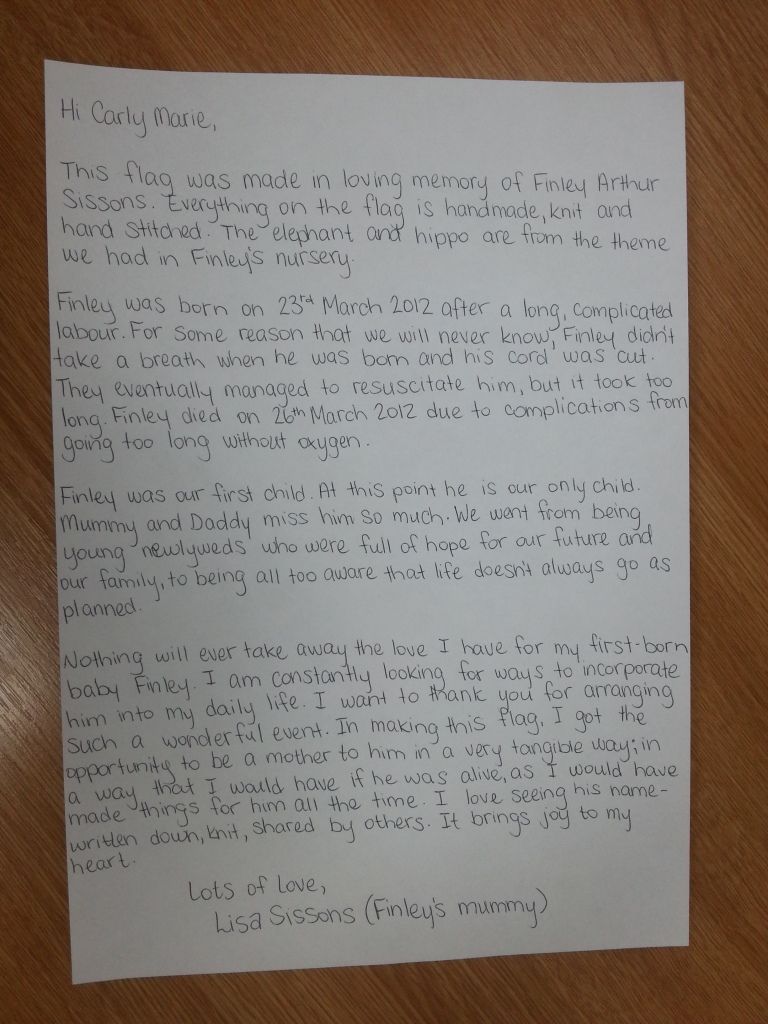 Hi Carly Marie,
This flag was made in loving memory of Finley Arthur
Sissons. Everything on the flag is handmade, knit and
hand stitched. The elephant and hippo are from the theme
we had in Finley's nursery.
Finley was born on 23rd March 2012 after a long, complicated
labour. For some reason that we will never know, Finley didn't
take a breath when he was born and his cord was cut.
They eventually managed to resuscitate him, but it took too
long. Finley died on 26th March 2012 due to complications from
going too long without oxygen.
Finley was our first child. At this point he is our only child.
Mummy and Daddy miss him so much. We went from being
young newlyweds who were full of hope for our future and
our family, to being all too aware that life doesn't always go as
planned.
Nothing will ever take away the love I have for my first-born
baby Finley. I am constantly looking for ways to incorporate
him into my daily life. I want to thank you for arranging
such a wonderful event. In making this flag, I got the
opportunity to be a mother to him in a very tangible way; in
a way that I would have if he was alive, as I would have
made things for him all the time. I love seeing his name-
written down, knit, shared by others. It brings joy to my
heart.
Lots of love,
Lisa Sissons (Finley's mummy)